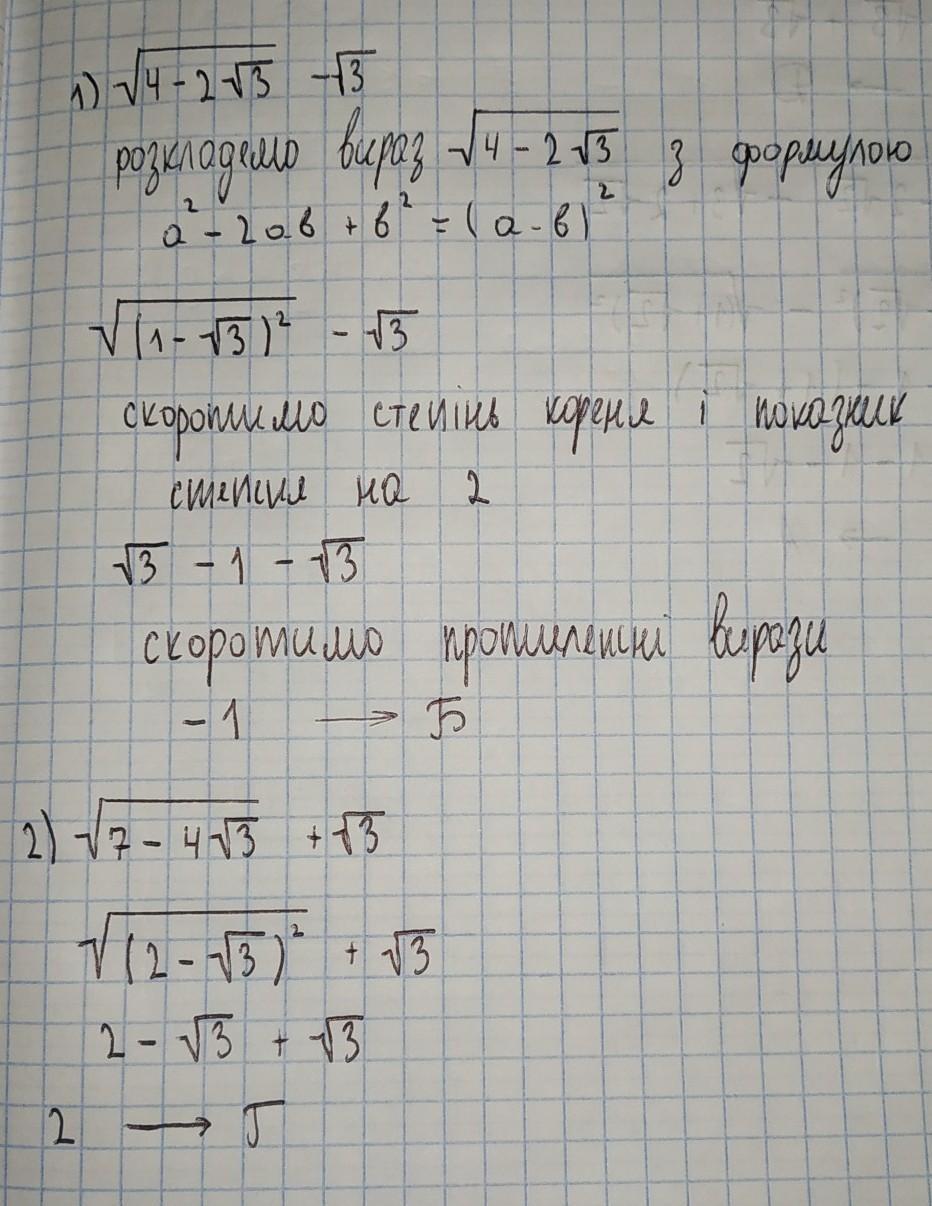 1) √(4 - 2√3) - √3
розкладемо вираз √(4 - 2√3) з формулою
a² - 2ab + b² = (a - b)²
√((1 - √3)²) - √3
скоротимо степінь кореня і показник
степеня на 2
√3 - 1 - √3
скоротимо протилежні вирази
-1 → Б
2) √(7 - 4√3) + √3
√((2 - √3)²) + √3
2 - √3 + √3
2 → Г